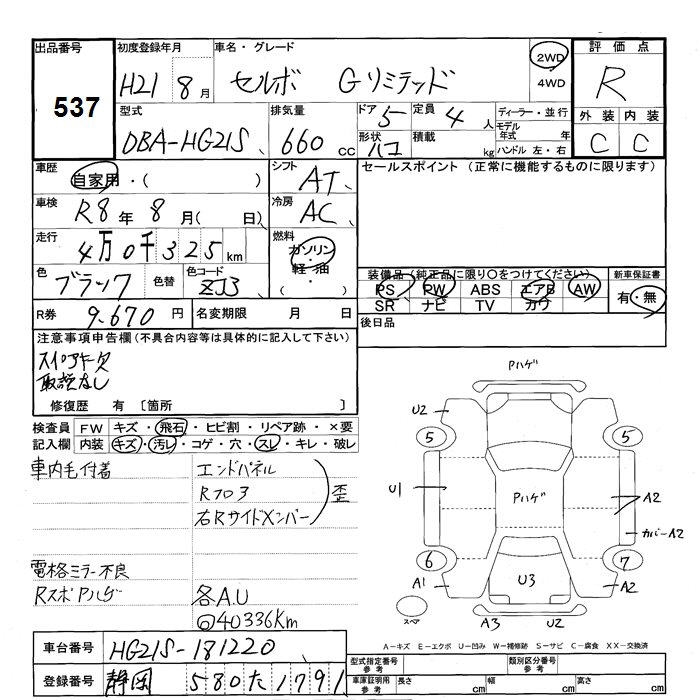 出品番号 537
初度登録年月 H21 8月
車名・グレード セルボ Gリミテッド
2WD
4WD
評価点 R
型式 DBA-HG21S
排気量 660 cc
ドア 5
形状 ハコ
定員 4人
積載 kg
ディーラー・並行
モデル年式 年
ハンドル 左・右
外装 内装
C C
車歴 自家用・( )
シフト AT
セールスポイント (正常に機能するものに限ります)
車検 R8年8月( 日)
冷房 AC
走行 4万0千325km
燃料 ガソリン・軽油 ( ・ )
色 ブラック 色替 色コード ZJ3
装備品(純正品に限り○をつけてください) 新車保証書
PS PW ABS エアB AW 有・無
SR ナビ TV カワ
R券 9,670円 名変期限 月 日
後日品
注意事項申告欄(不具合内容等は具体的に記入して下さい)
スペアキー欠
取説なし
修復歴 有 〔箇所 〕
検査員 FW キズ・飛石・ヒビ割・リペア跡・×要
記入欄 内装 キズ・汚レ・コゲ・穴・スレ・キレ・破レ
車内毛付着
エンドパネル
Rフロア
右Rサイドメンバー
歪
電格ミラー不良
RスポPハゲ
各A.U
◎40336Km
Pハゲ
U2
5 5
U1
Pハゲ
A2
カバーA2
6 7
A1 U3 A2
スペア
A3 U2
A-キズ E-エクボ U-凹み W-補修跡 S-サビ C-腐食 XX-交換済
車台番号 HG21S-181220
型式指定番号 参考 類別区分番号 参考
登録番号 静岡 580 た 1791
車庫証明用 参考 長さ cm 幅 cm 高さ cm